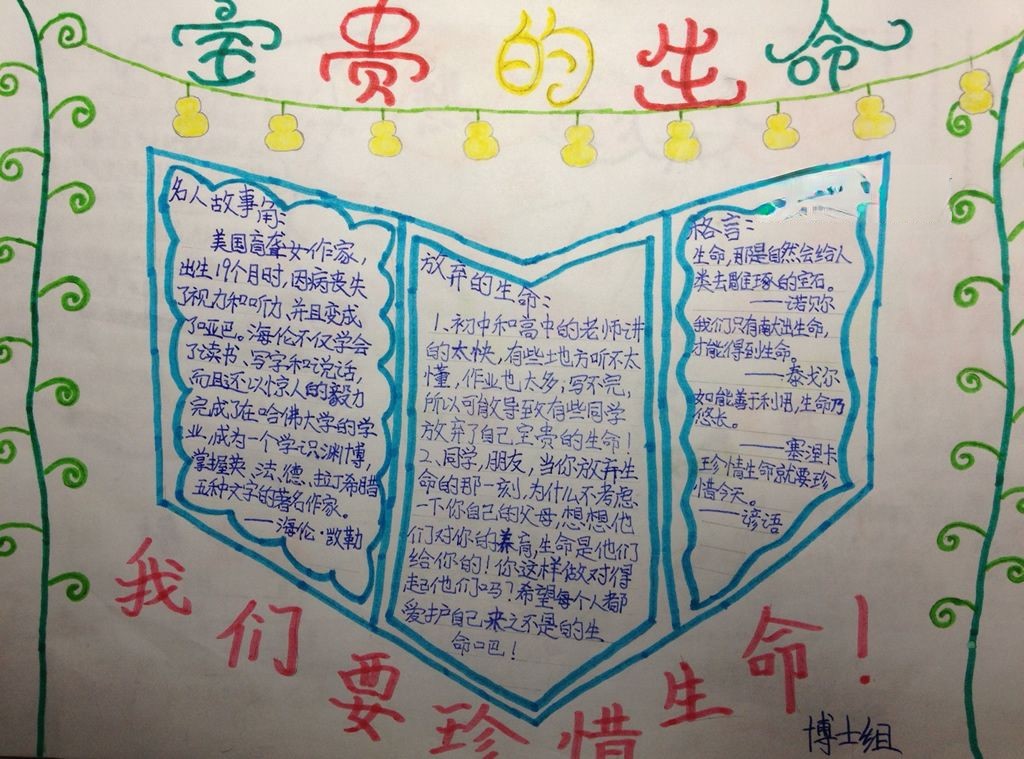 宝贵的生命
名人故事角：
美国盲聋女作家，
出生19个月时，因病丧失
了视力和听力，并且变成
了哑巴。海伦不仅学会
了读书、写字和说话，
而且还以惊人的毅力
完成了在哈佛大学的学
业，成为一个学识渊博，
掌握英、法、德、拉丁希腊
五种文字的著名作家。
——海伦·凯勒
放弃的生命：
1、初中和高中的老师讲
的太快，有些地方听不太
懂，作业也太多，写不完，
所以可能导致有些同学
放弃了自己宝贵的生命！
2、同学，朋友，当你放弃生
命的那一刻，为什么不考虑
一下你自己的父母，想想他
们对你的养育，生命是他们
给你的！你这样做对得
起他们吗？希望每个人都
爱护自己来之不是的生
命吧！
格言：
生命，那是自然会给人
类去雕琢的宝石。
——诺贝尔
我们只有献出生命，
才能得到生命。
——泰戈尔
如能善于利用，生命乃
悠长。
——塞涅卡
珍惜生命就要珍
惜今天。
——谚语
我们要珍惜生命！
博士组